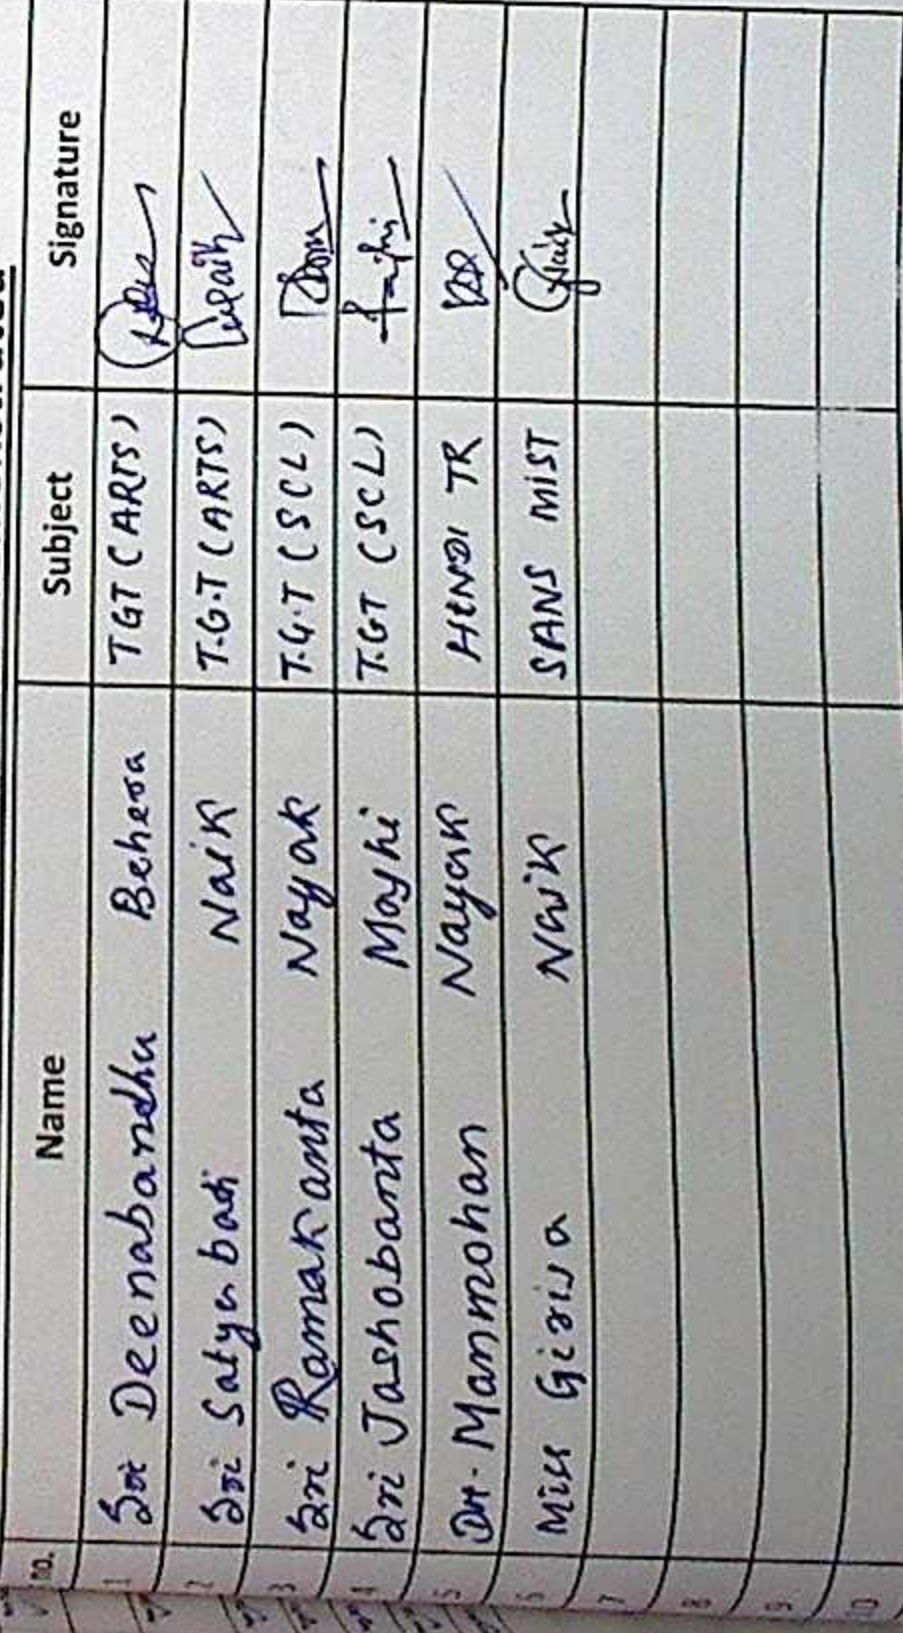 no. Name Subject Signature
1 Sri Deenabandhu Behera TGT (ARTS)
2 Sri Satyabadi Naik T.G.T (ARTS)
3 Sri Ramakanta Nayak T.G.T (SCL)
4 Sri Jashobanta Majhi T.GT (SCL)
5 Dr. Manmohan Nayak HINDI TR
6 Miss Naik SANS MIST
7
8
9
10